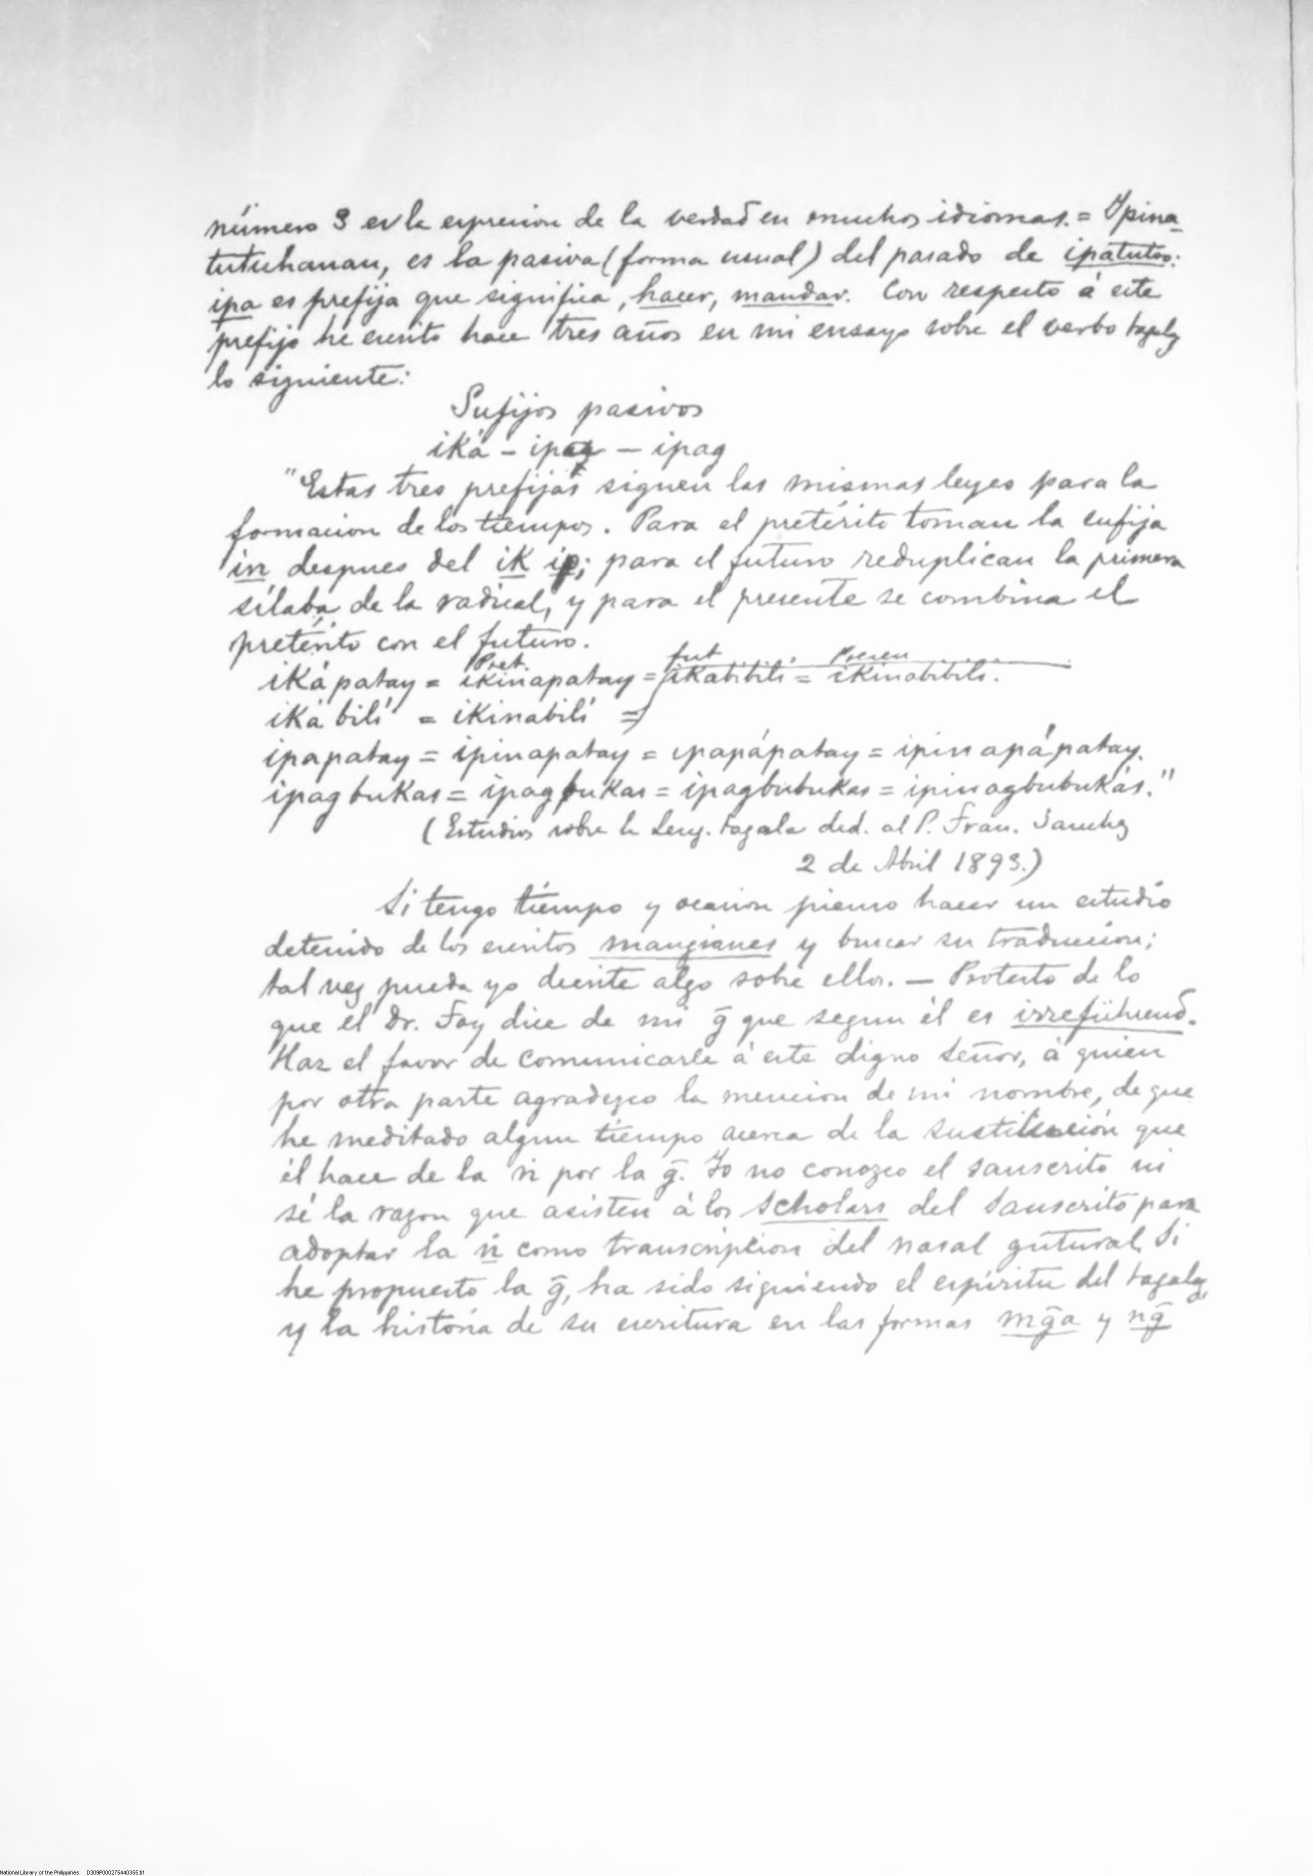 número 3 es la expresion de la verdad en muchos idiomas. = Ipina-
tutuhanan, es la pasiva (forma usual) del pasado de ipatutoo:
ipa es prefija que significa, hacer, mandar. Con respecto á este
prefijo he escrito hace tres años en mi ensayo sobre el verbo tagalog
lo siguiente:
Sufijos pasivos
iká - ipa - ipag
"Estas tres prefijas siguen las mismas leyes para la
formacion de los tiempos. Para el pretérito toman la sufija
in despues del ik ip; para el futuro reduplican la primera
sílaba de la radical, y para el presente se combina el
pretérito con el futuro.
Pret. fut Presen
ikápatay = ikinapatay = ikabibilí = ikinabibilí.
iká bilí = ikinabilí =
ipapatay = ipinapatay = ipapápatay = ipinapápatay.
ipagbukas = ipagbukas = ipagbubukas = ipinagbubukás."
(Estudios sobre la Leng. tagala ded. al P. Fran. Sanchez
2 de Abril 1893.)
Si tengo tiempo y ocasion pienso hacer un estudio
detenido de los escritos mangianes y buscar su traduccion;
tal vez pueda yo decirte algo sobre ellos. — Protesto de lo
que el Dr. Foy dice de mi g̃ que segun él es irreführend.
Haz el favor de comunicarle á este digno señor, á quien
por otra parte agradezco la mencion de mi nombre, de que
he meditado algun tiempo acerca de la sustitucion que
él hace de la ṅ por la g̃. Yo no conozco el sanscrito ni
sé la razon que asisten á los scholars del Sanscrito para
adoptar la ṅ como transcripcion del nasal gutural. Si
he propuesto la g̃, ha sido siguiendo el espíritu del tagalog
y la historia de su escritura en las formas mg̃a y ng̃